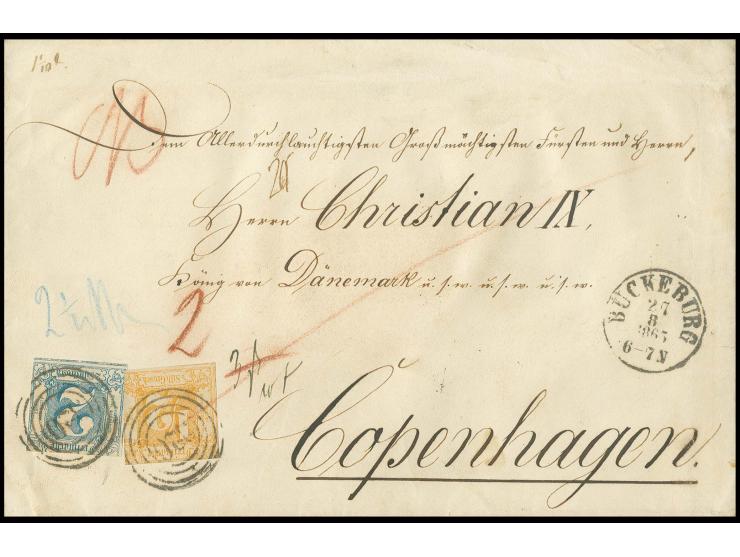 Dem Allerdurchlauchtigsten Großmächtigsten Fürsten und Herrn,
Herrn Christian IX,
König von Dänemark u. s. w. u. s. w. u. s. w.
2
BÜCKEBURG
27
8
1865
6-7 N
Copenhagen.